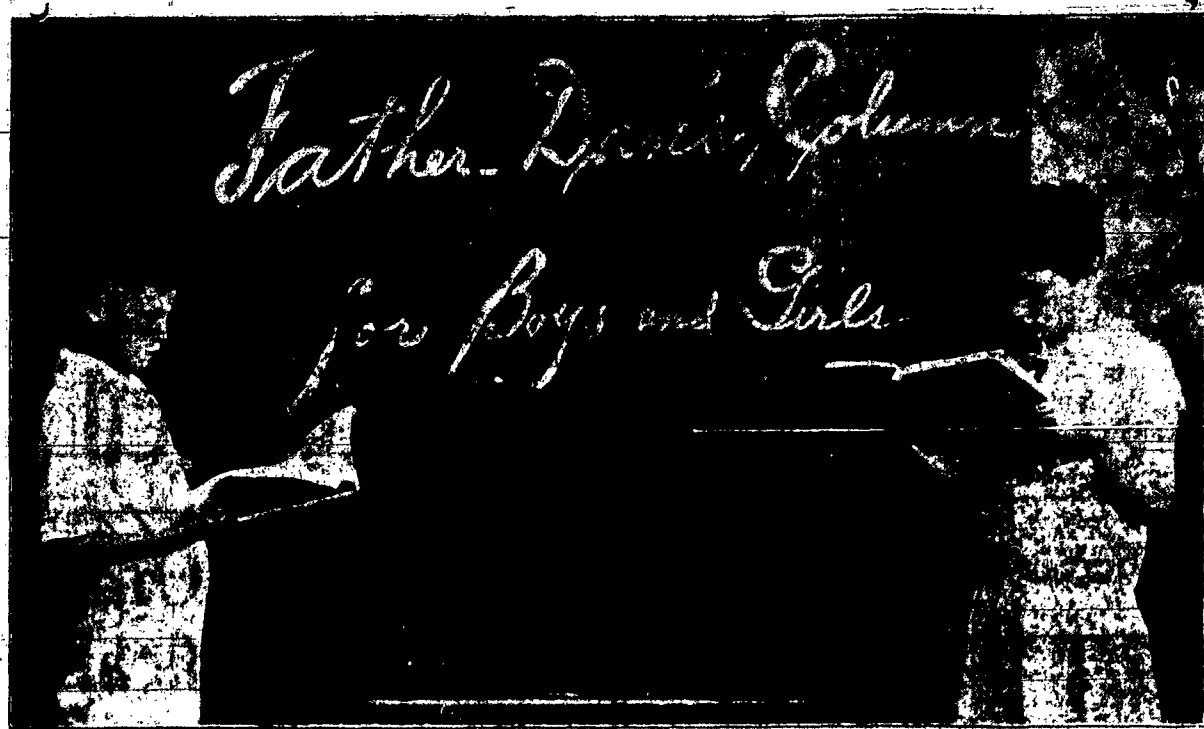 Father Column
for Boys and Girls